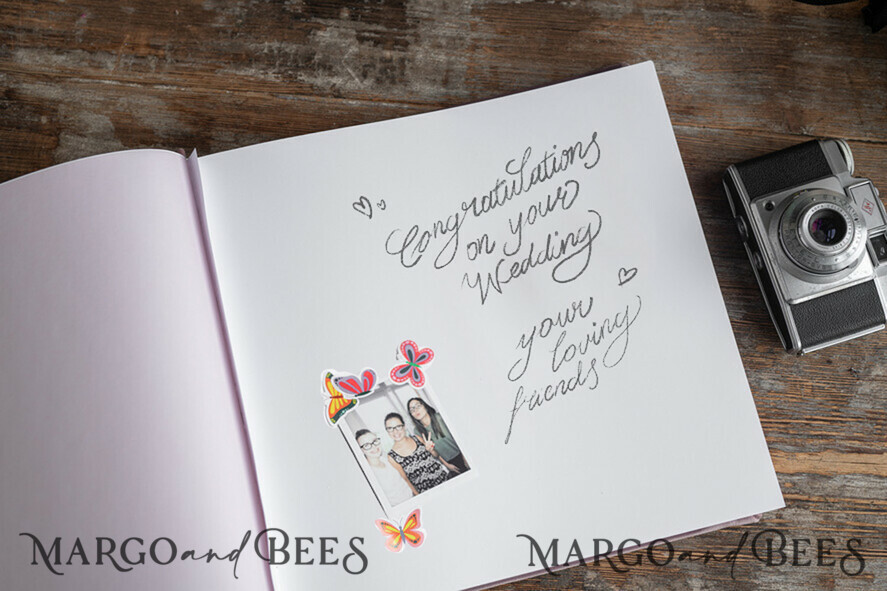 Congratulations
on your
Wedding
your
loving
friends
MARGO and BEES
MARGO and BEES